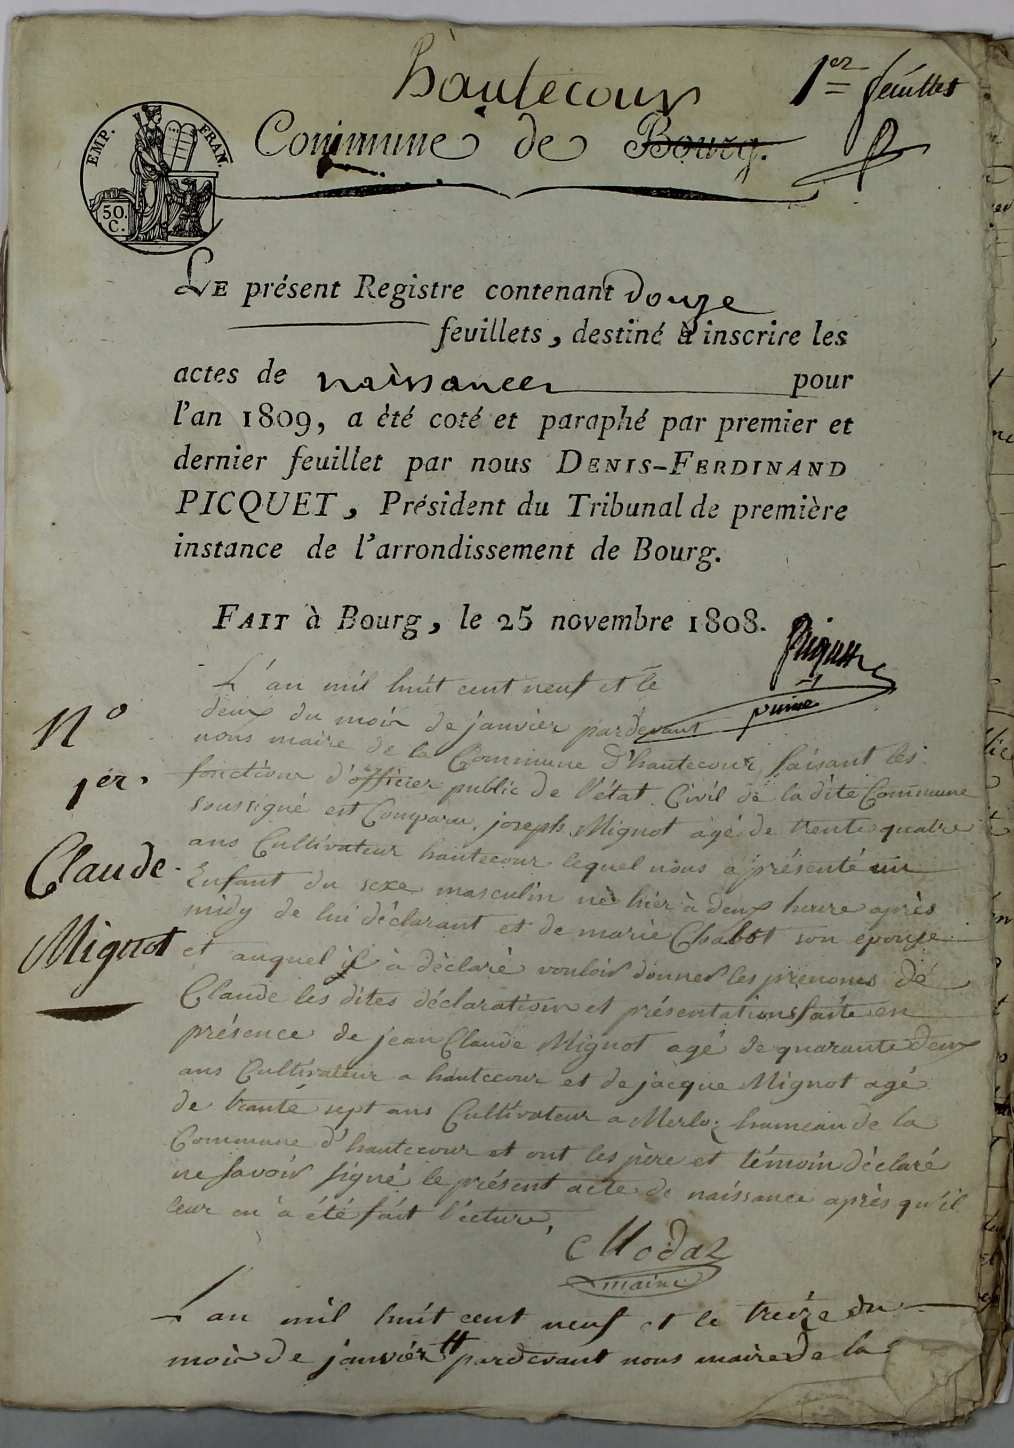 hautecour
1er feuillet
EMP. FRAN.
50. C.
Commune de Bourg.
LE présent Registre contenant Douze
feuillets, destiné à inscrire les
actes de naissances pour
l'an 1809, a été coté et paraphé par premier et
dernier feuillet par nous DENIS-FERDINAND
PICQUET, Président du Tribunal de première
instance de l'arrondissement de Bourg.
FAIT à Bourg, le 25 novembre 1808.
L'an mil huit cent neuf et le
deux du mois de janvier pardevant
nous maire de la Commune d'hautecour faisant les
fonctions d'officier public de l'état Civil de la dite Commune
soussigné est Comparu joseph Mignot agé de trente quatre
ans Cultivateur hautecour lequel nous a présenté un
Enfant du sexe masculin né hier à deux heure après
midy de lui déclarant et de marie Chabot son épouse
et auquel il à déclaré vouloir donner les prenoms de
Claude les dites déclaration et présentation faite en
présence de jean Claude Mignot agé de quarante Deux
ans Cultivateur a hautecour et de jacque Mignot agé
de trante sept ans Cultivateur a Merloz hameau de la
Commune d'hautecour et ont les père et témoin déclaré
ne savoir signé le présent acte de naissance après qu'il
leur en à été fait l'ecture,
maire
N°
1er.
Claude
Mignot
L'an mil huit cent neuf et le treize du
mois de janvier pardevant nous maire de la